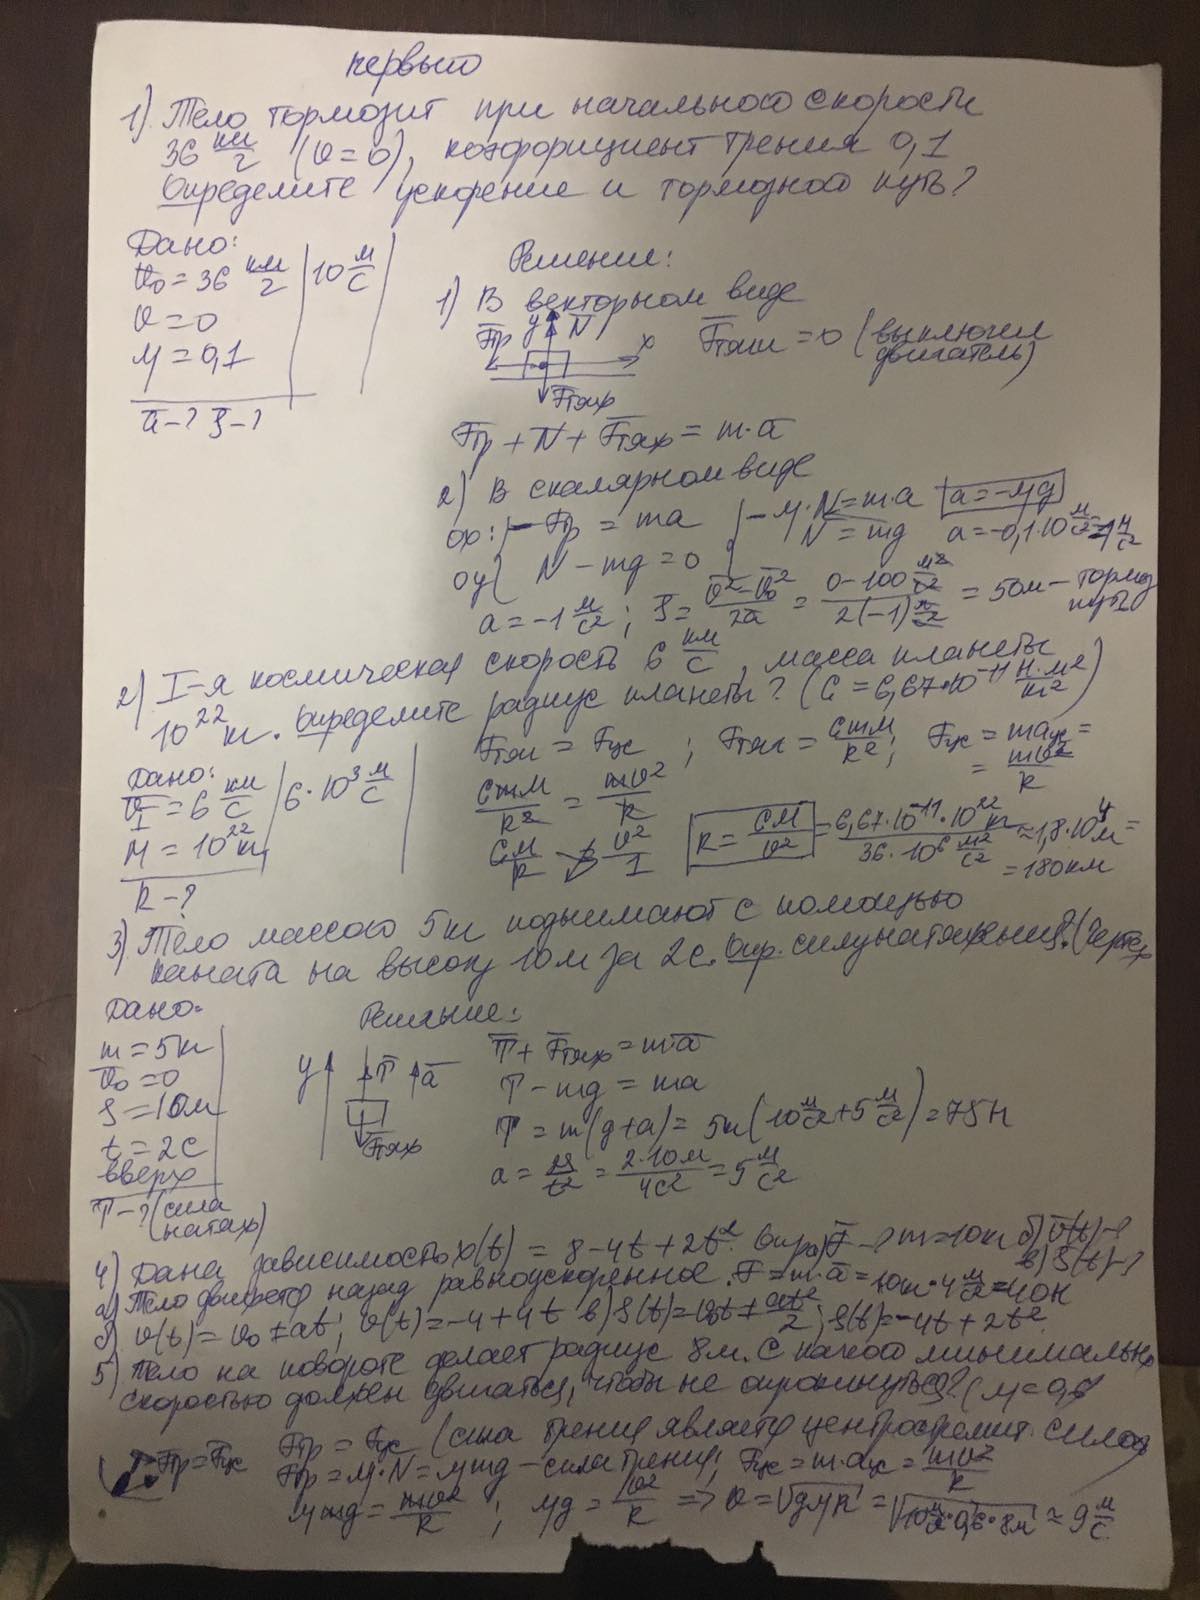 первый
1) Тело тормозит при начальной скорости
36 км/ч (v=0), коэффициент трения 0,1
Определите ускорение и тормозной путь?
Дано:
v₀=36 км/ч | 10 м/с
v=0
μ=0,1
a̅-? S̅-?
Решение:
1) В векторном виде
F̅тр y N̅ x F̅тяги=0 (выключен
двигатель)
F̅тяж
F̅тр+N̅+F̅тяж=m·a̅
2) В скалярном виде
ox: -Fтр=ma | -μ·N=m·a a=-μg
oy N-mg=0 N=mg a=-0,1·10 м/с²=-1 м/с²
a=-1 м/с²; S̅=(v̅²-v̅₀²)/2a̅=(0-100 м²/с²)/(2(-1) м/с²)=50м-тормоз
путь
2) I-я космическая скорость 6 км/с, масса планеты
10²² кг. Определите радиус планеты? (G=6,67·10⁻¹¹ Н·м²/кг²)
Дано:
v̅I=6 км/с | 6·10³ м/с
M=10²² кг
R-?
Fтяг=Fцс; Fтяг=GmM/R²; Fцс=maцс=
=mv²/R
GmM/R²=mv²/R
GM/R v²/1 R=GM/v²=(6,67·10⁻¹¹·10²² кг)/(36·10⁶ м²/с²)≈1,8·10⁴м=
=180км
3) Тело массой 5кг поднимают с помощью
каната на высоту 10м за 2с. Опр. силу натяжения? (Чертеж
Дано:
m=5кг
v̅₀=0
S=10м
t=2с
вверх
T-? (сила
натяж)
Решение:
y T̅ a̅
F̅тяж
T̅+F̅тяж=m·a̅
T-mg=ma
T=m(g+a)=5кг(10 м/с²+5 м/с²)=75Н
a=2S/t²=2·10м/4с²=5 м/с²
4) Дана зависимость x(t)=8-4t+2t². Опр. а) F̅-? m=10кг б) v̅(t)-?
в) S(t)-?
а) Тело движется назад равноускоренное. F=m·a̅=10кг·4 м/с²=40Н
б) v(t)=v₀±at; v(t)=-4+4t в) S(t)=v₀t±at²/2; S(t)=-4t+2t²
5) Тело на повороте делает радиус 8м. С какой минимально
скоростью должен двигаться, чтобы не опрокинуться? (μ=0,8
Fтр=Fцс Fтр=Fцс (сила трения является центростремит. силой
Fтр=μ·N=μmg-сила трения; Fцс=m·aцс=mv²/R
μmg=mv²/R; μg=v²/R => v=√gμR=√10 м/с²·0,8·8м≈9 м/с